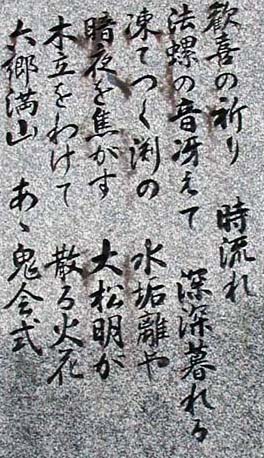 歓喜の祈り 時流れ
法螺の音冴えて 深深暮れる
凍てつく渕の 水垢離や
暗夜を焦がす 大松明が
木立をわけて 散る火花
六郷満山 あゝ鬼会式